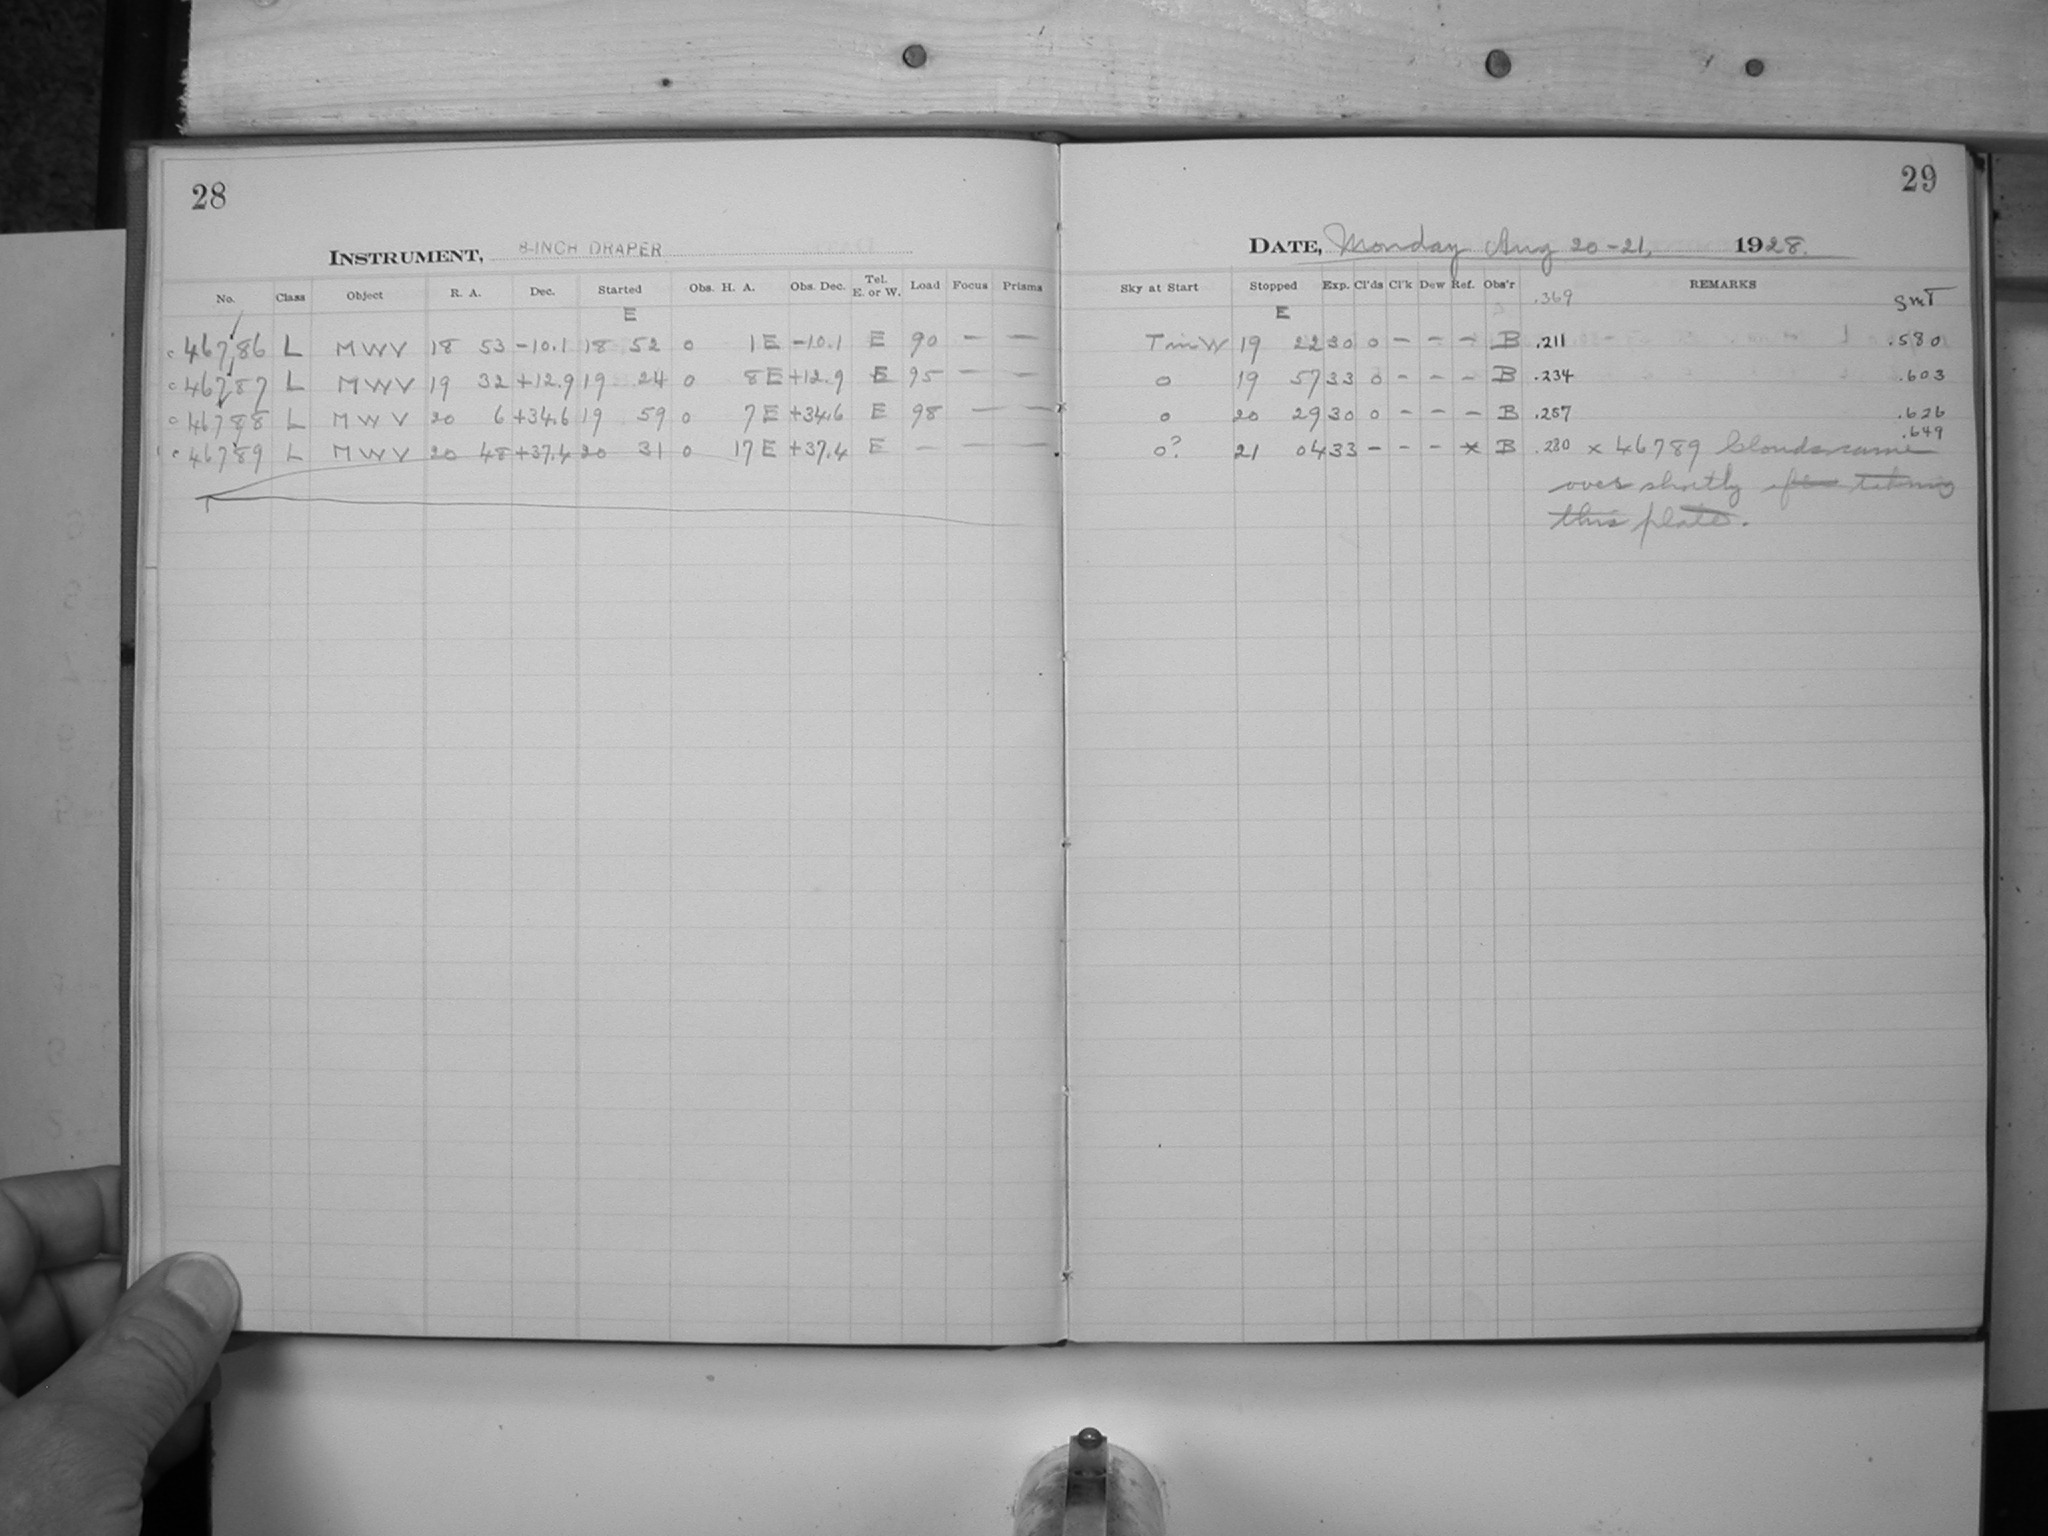 28
INSTRUMENT, 8-INCH DRAPER
No. Class Object R. A. Dec. Started Obs. H. A. Obs. Dec. Tel. E. or W. Load Focus Prisms
E
c 46786 L MWV 18 53 -10.1 18 52 0 1E -10.1 E 90 — —
c 46787 L MWV 19 32 +12.9 19 24 0 8E +12.9 E 95 — —
c 46788 L MWV 20 6 +34.6 19 59 0 7E +34.6 E 98 — —
c 46789 L MWV 20 48 +37.4 20 31 0 17E +37.4 E — — —
29
DATE, Monday Aug 20-21, 1928.
Sky at Start Stopped Exp. Cl'ds Cl'k Dew Ref. Obs'r REMARKS
E .369 SMT
T in W 19 22 30 0 - - - B .211 .580
0 19 57 33 0 - - - B .234 .603
0 20 29 30 0 - - - B .257 .626
.649
0? 21 04 33 - - - x B .280 x 46789 Clouds came
over shortly after taking
this plate.